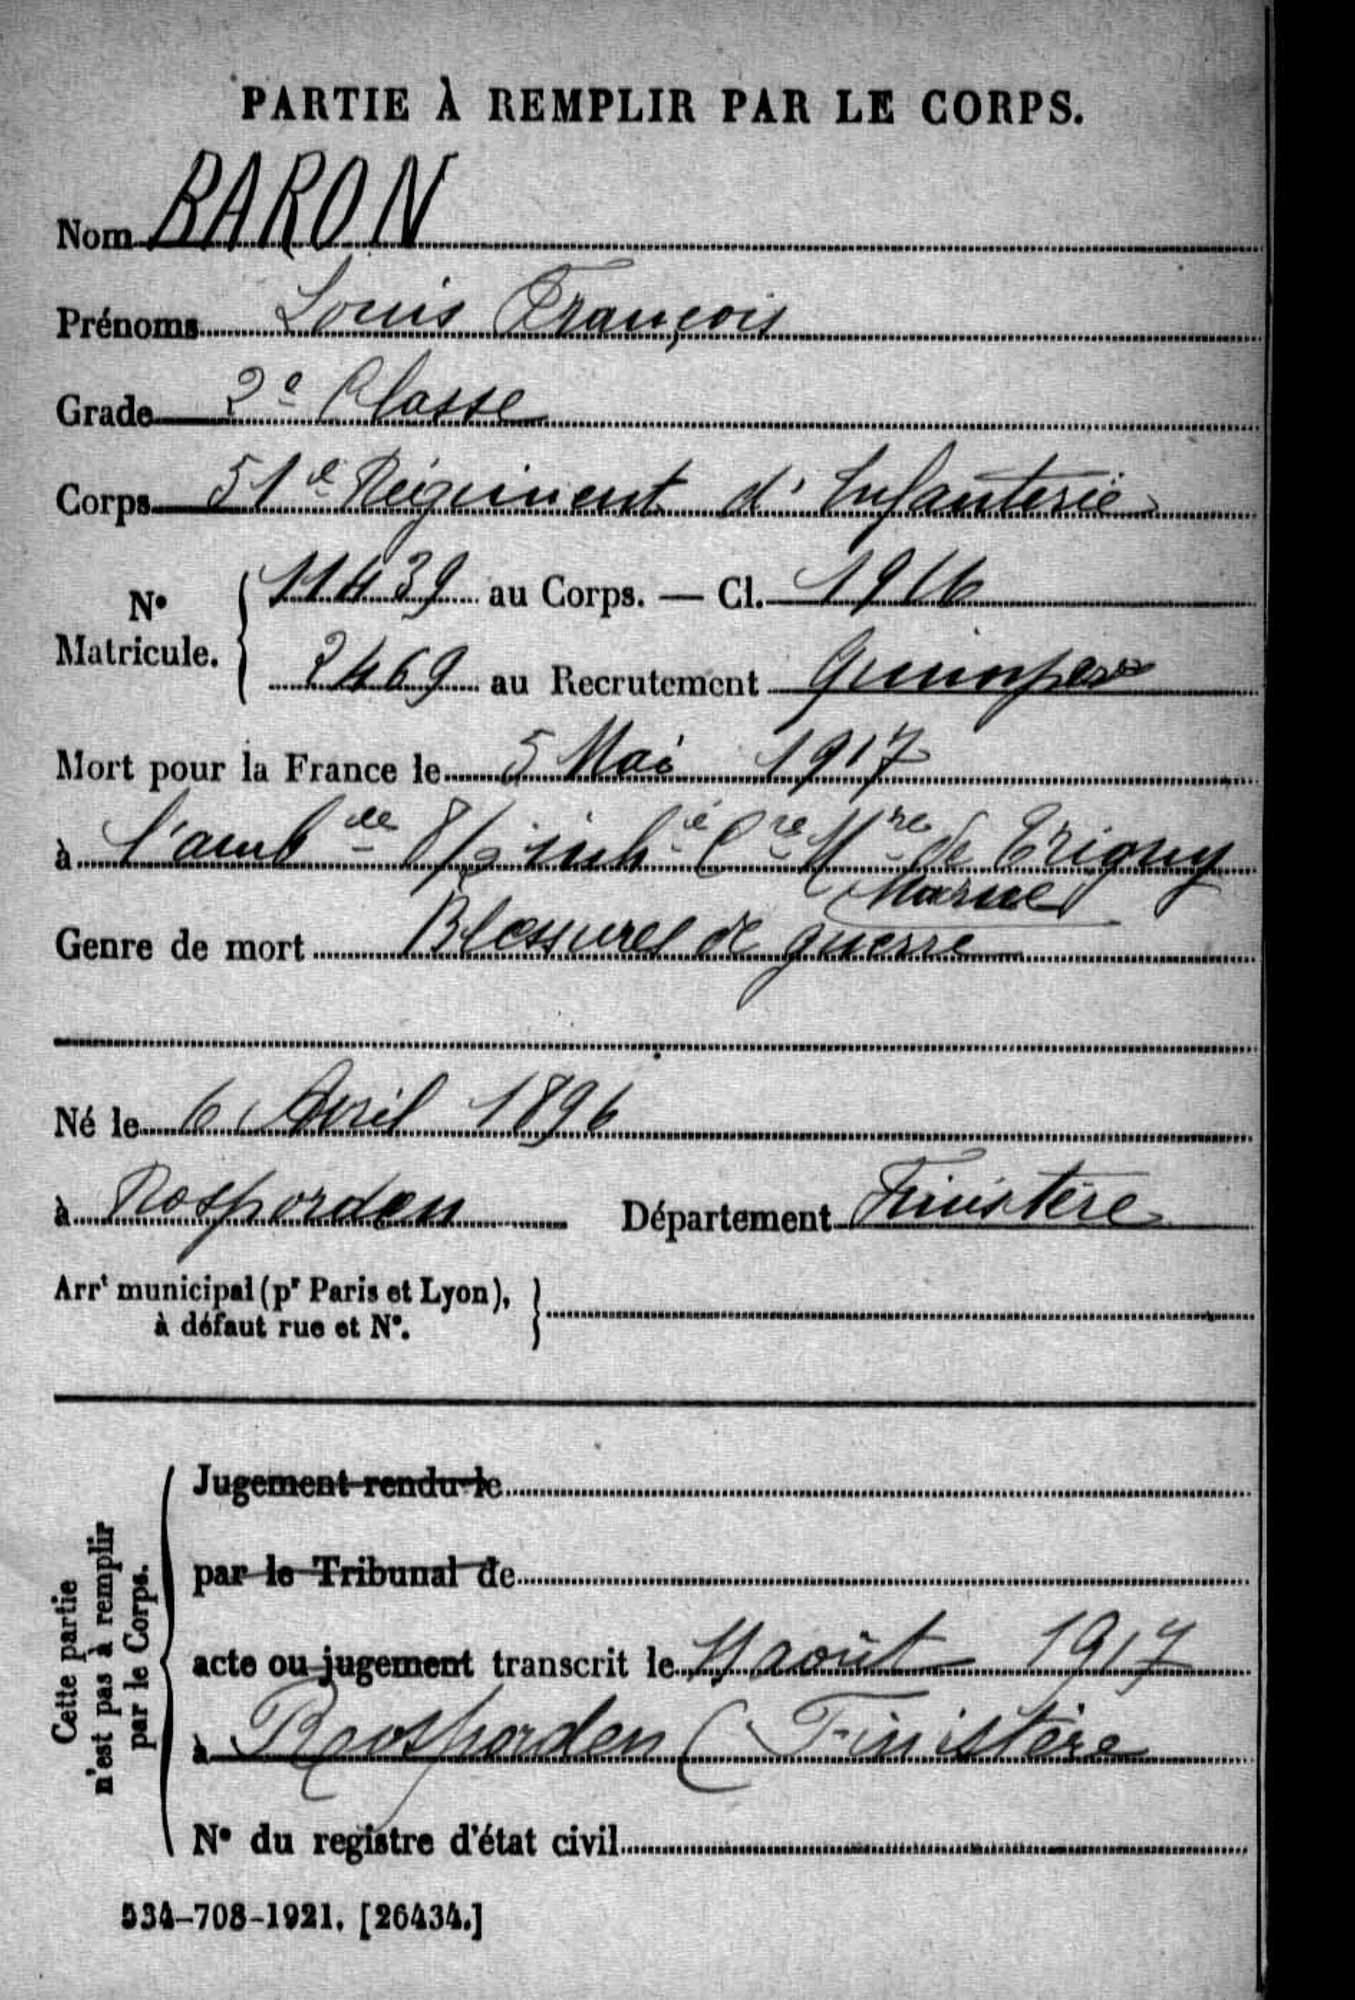 PARTIE À REMPLIR PAR LE CORPS.
Nom BARON
Prénoms Louis François
Grade 2e Classe
Corps 51e Régiment d'Infanterie
No Matricule. { 11439 au Corps. — Cl. 1916
2469 au Recrutement Quimper
Mort pour la France le 5 Mai 1917
à l'ambce 8/ de Trigny
Marne
Genre de mort Blessures de guerre
Né le 6 Avril 1896
à Rosporden Département Finistère
Arrt municipal (pr Paris et Lyon),
à défaut rue et No.
Cette partie n'est pas à remplir par le Corps.
Jugement rendu le
par le Tribunal de
acte ou jugement transcrit le 11 août 1917
à Rosporden (Finistère
No du registre d'état civil
534-708-1921. [26434.]